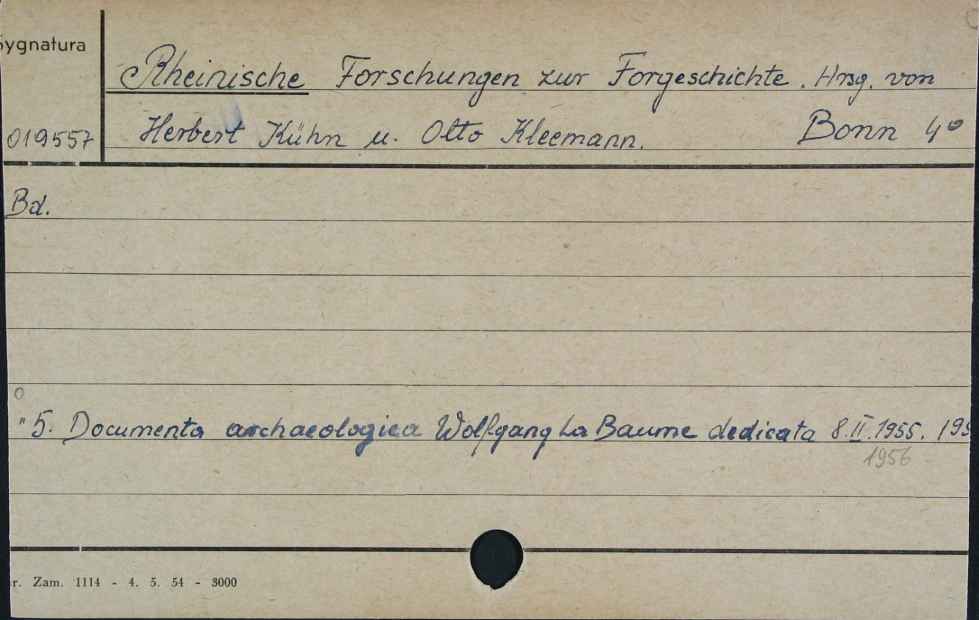 Sygnatura
Rheinische Forschungen zur Forgeschichte. Hrsg. von
019557 Herbert Kühn u. Otto Kleemann. Bonn 4°
Bd.
" 5. Documenta archaeologica Wolfgang La Baume dedicata 8.II.1955. 195
1956
r. Zam. 1114 - 4. 5. 54 - 3000